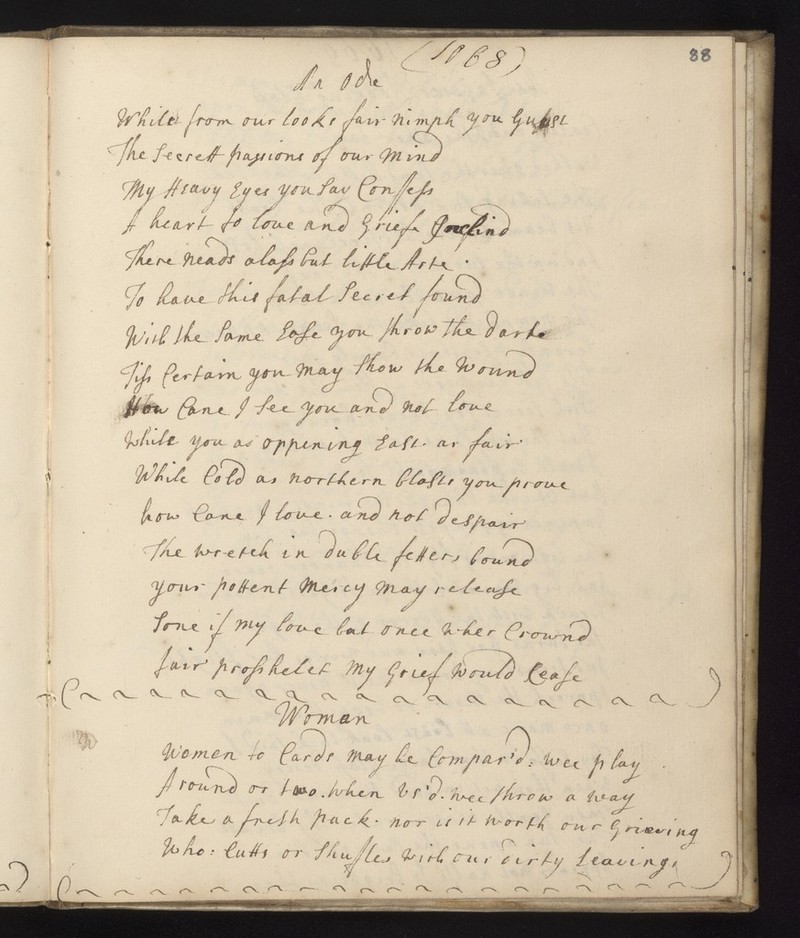 (1068)
88
An Ode
While from our looks fair nimph you Guess
The Secrett passions of our mind
My Heavy Eyes you Say Confess
A heart to love and Griefe Inclind
There neads alass but little Arte
To have this fatal Secret found
With the Same Ease you throw the darte
Tiss Certain you may Show the Wound
How Cane I See you and not love
While you as oppening East ar fair
While Cold as northern blasts you prove
how Cane I love. and not despair
The wretch in duble fetters bound
your pottent Mercy may release
Sone if my love but once wher Crownd
fair prophetes My Grief would Cease
Woman
Women to Cards may be Compar'd: wee play
A round or two. when Us'd. wee throw a way
Take a fresh pack. nor is it worth our Grieving
Who: Cutts or Shufles with our dirty Leavings